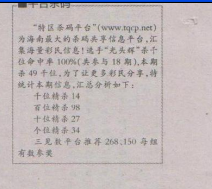 ■平台杀码
“特区杀码平台”(www.tqcp.net)
为海南最大的杀码共享信息平台,汇
集海量彩民信息!选手“光头辉”杀千
位命中率100%(共参与18期),本期
杀49千位。为了让更多彩民分享,特
统计本期信息,汇总分析如下:
千位精杀14
百位精杀98
十位精杀27
个位精杀34
三见数平台推荐268;150每组
有数参奖